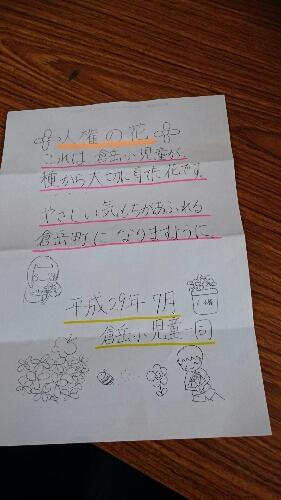 人権の花
これは倉岳小児童が、
種から大切に育てた花です。
やさしい気もちがあふれる
倉岳町になりますように。
平成29年7月
倉岳小児童一同